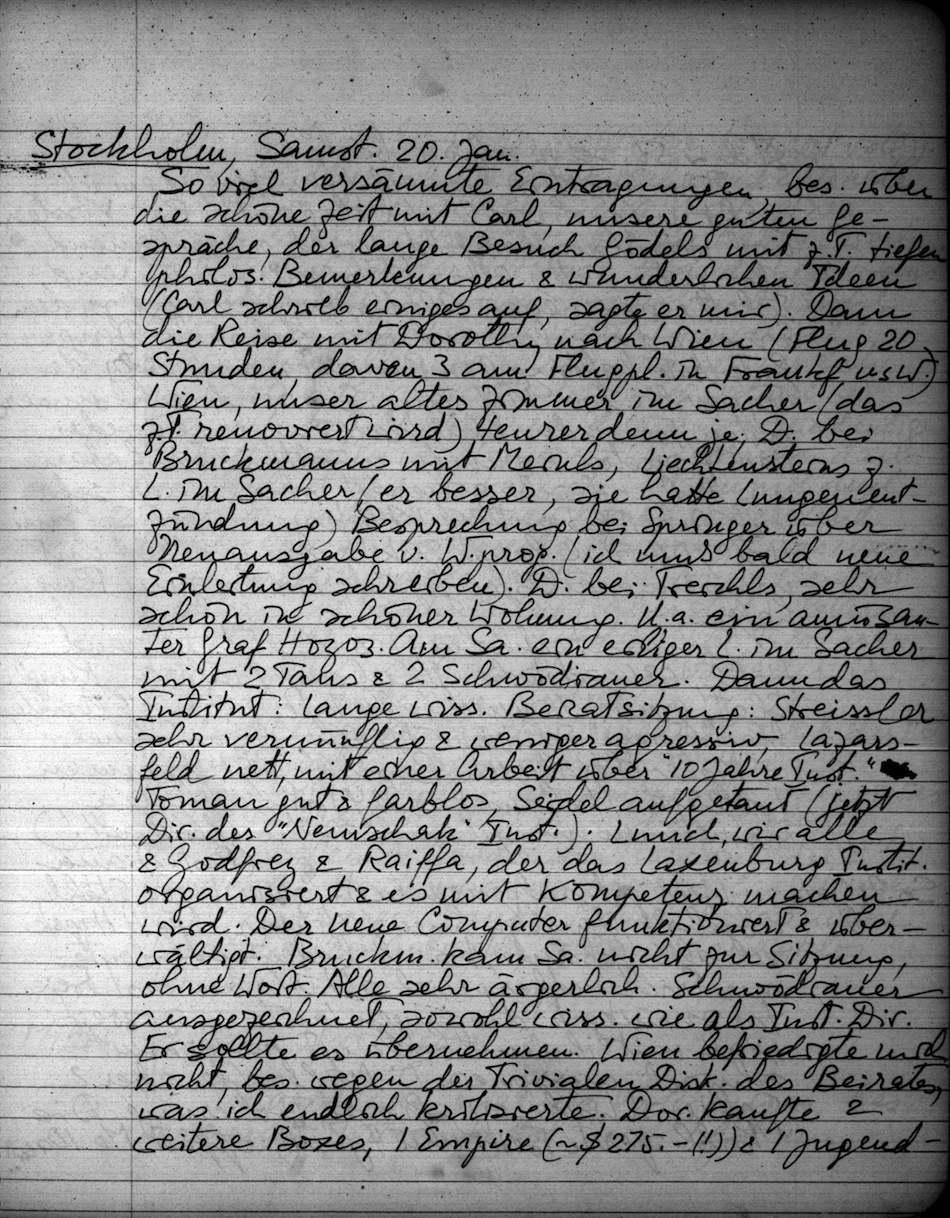 Stockholm, Samst. 20. Jan.
So viel versäumte Eintragungen, bes. über
die schöne Zeit mit Carl, unsere guten Ge-
spräche, der lange Besuch Gödels mit z.T. tiefen
philos. Bemerkungen & wunderlichen Ideen
(Carl schrieb einiges auf, sagte er mir). Dann
die Reise mit Dorothy nach Wien (Flug 20
Stunden, davon 3 am Flugpl. in Frankf. usw.)
Wien, unser altes Zimmer im Sacher (das
z.T. renoviert wird), teurer denn je. D. bei
Bruckmanns mit Liechtensteins z.
L. im Sacher (er besser, sie hatte Lungenent-
zündung) Besprechung bei Springer über
Neuausgabe v. W.prog. (ich muss bald neue
Einleitung schreiben). D. bei Treichls, sehr
schön in schöner Wohnung. U.a. ein amüsan-
ter Graf Hoyos. Am Sa. ein eiliger L. im Sacher
mit 2 & 2 Schwödiauer. Dann das
Institut: Lange wiss. Beiratsitzung: Streissler
sehr vernünftig & weniger agressiv, Lazars-
feld nett, mit einer Arbeit über "10 Jahre Inst."
Toman gut & farblos, Seidel aufgetaut (jetzt
Dir. des "Nemschak" Inst.). Lunch, wir alle
& Godfrey & Raiffa, der das Laxenburg Instit.
organisiert & es mit Kompetenz machen
wird. Der neue Computer funktioniert & über-
wältigt. Bruckm. kam Sa. nicht zur Sitzung,
ohne Wort. Alle sehr ärgerlich. Schwödiauer
ausgezeichnet, sowohl wiss. wie als Inst. Dir.
Er sollte es übernehmen. Wien befriedigte mich
nicht, bes. wegen der Trivialen Disk. des Beirates,
was ich endlich kritisierte. Dor. kaufte 2
weitere Boxes, 1 Empire (~$275.-(!!)) & 1 Jugend-